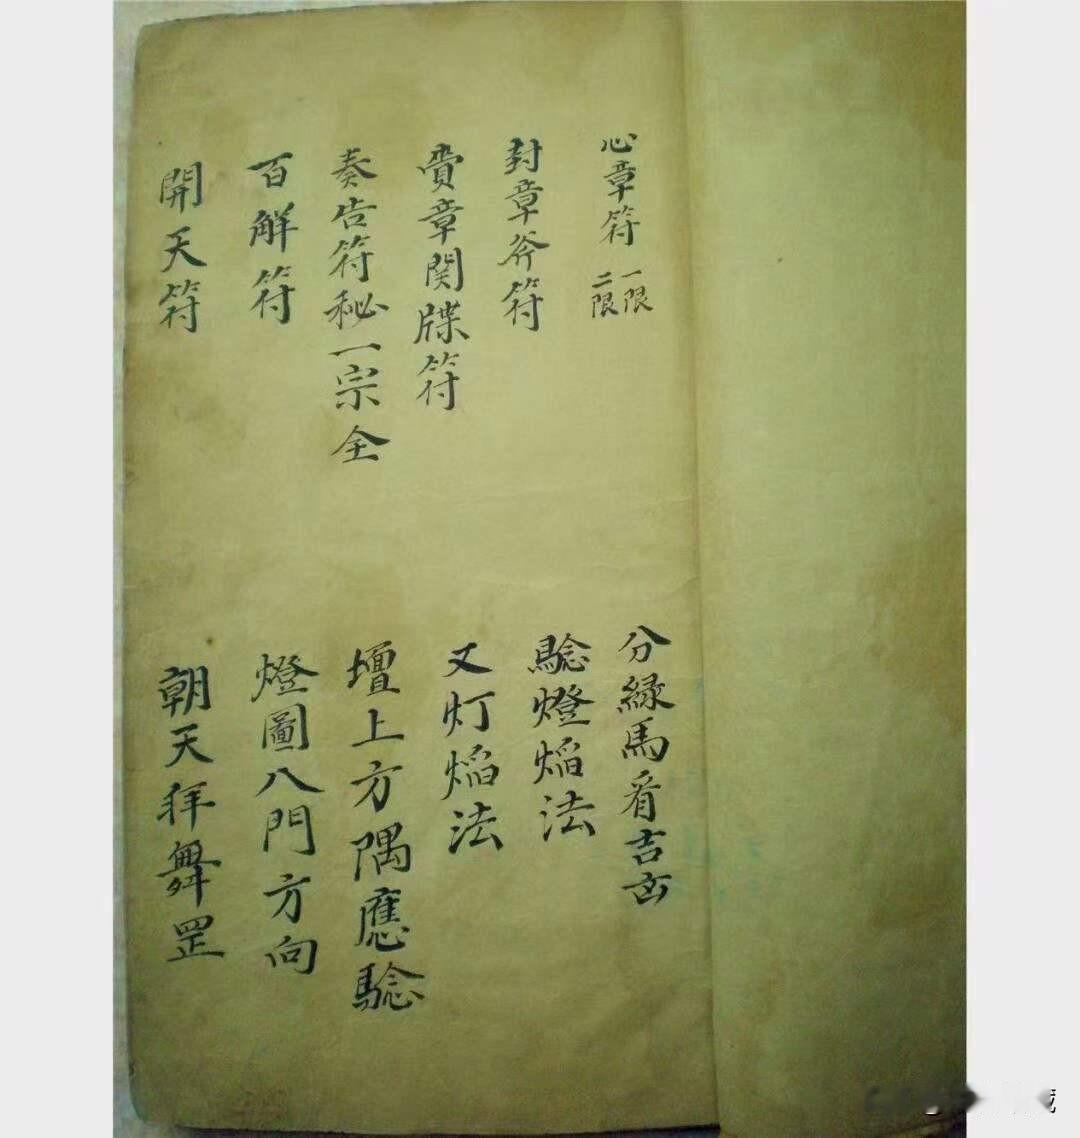 心章符 一限 二限
封章斧符
賫章関牒符
奏告符秘一宗全
百解符
開天符
分緑馬看吉凶
驗燈焰法
又灯焰法
壇上方隅應驗
燈圖八門方向
朝天拜舞罡